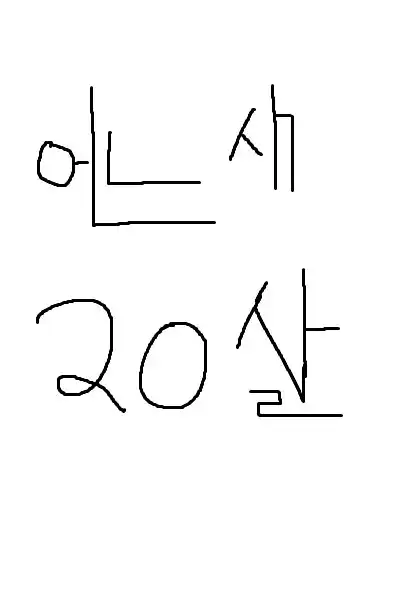 언새
20살